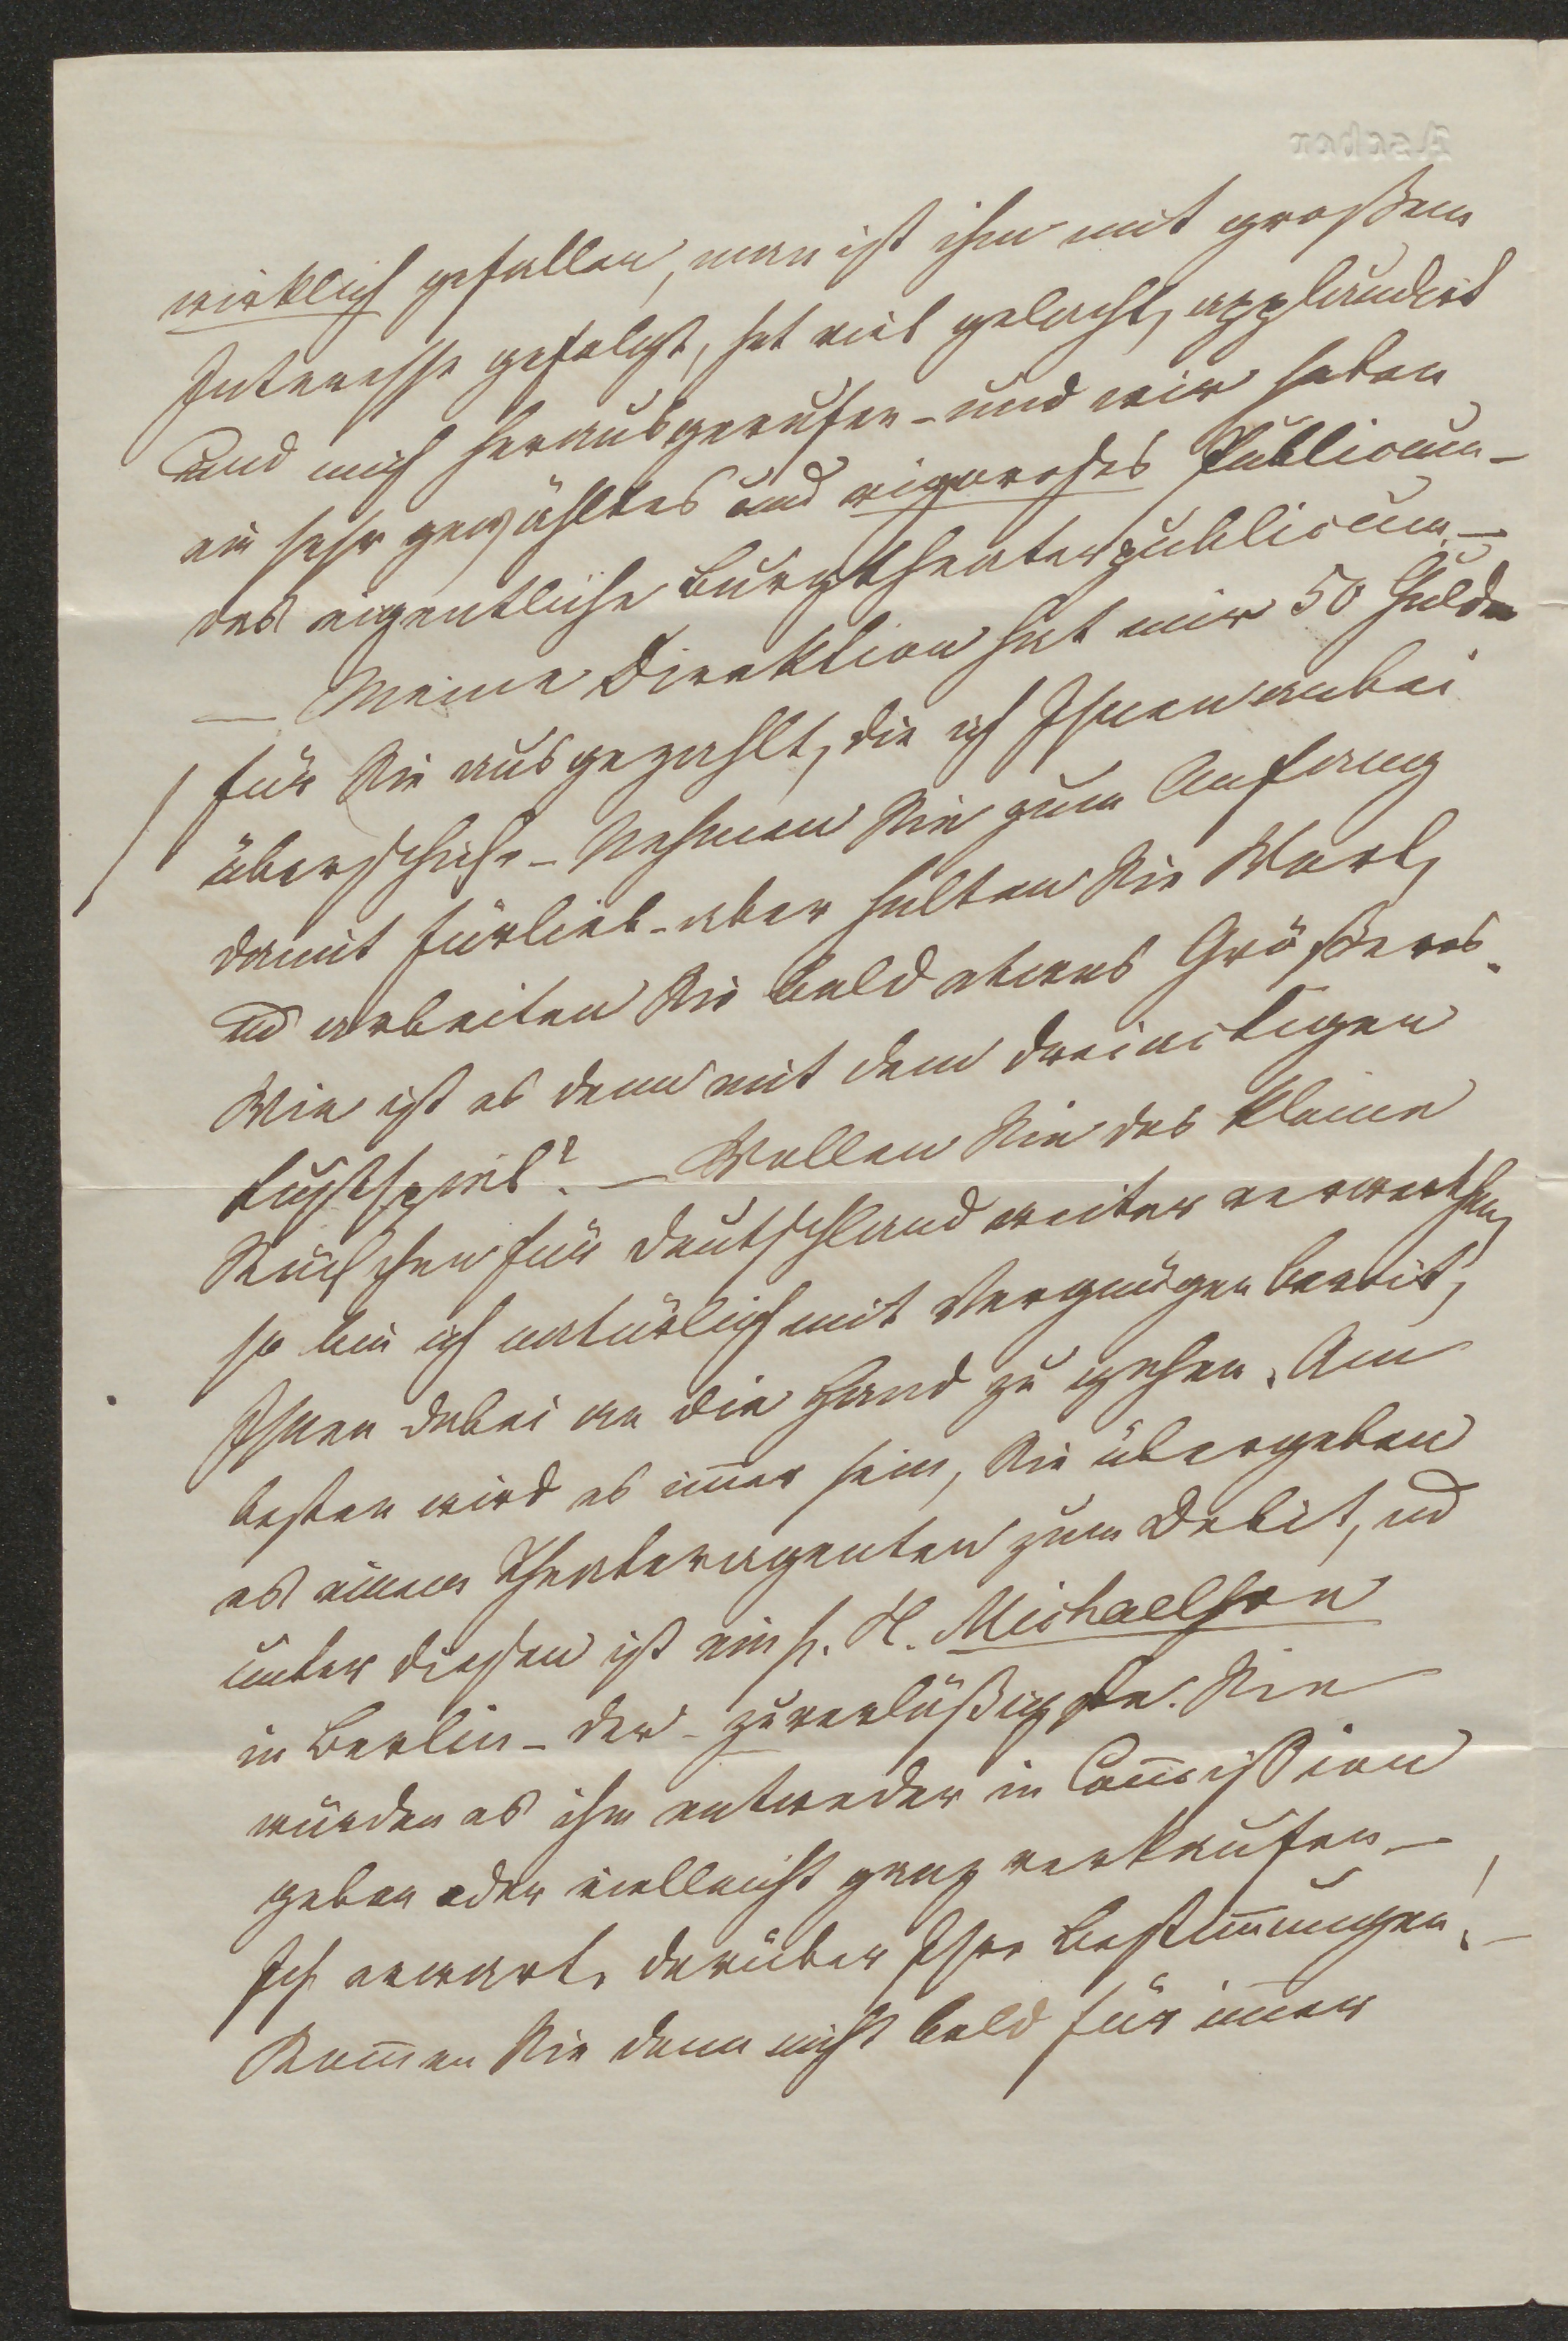 Ascher
wirklich gefallen, man ist ihm mit großem
Interesse gefolgt, hat viel gelacht, applaudirt
und mich herausgerufen – und wir haben
ein sehr gewähltes und rigoroses Publicum –
das eigentliche Burgtheaterpublicum. –
— Meine Direktion hat mir 50 Gulden
für Sie ausgezahlt, die ich Ihnen anbei
überschicke – Nehmen Sie zum Anfang
damit fürlieb – aber halten Sie Wort,
und arbeiten Sie bald etwas Größeres.
Wie ist es denn mit dem dreiactigen
Lustspiel? — Wollen Sie das kleine
Stückchen für Deutschland weiter verwerthen,
so bin ich natürlich mit Vergnügen bereit,
Ihnen dabei an die Hand zu gehen. Am
besten wird es im̄er sein, Sie übergeben
es einem Theateragenten zum Debit, ud
unter diesen ist ein H. Michaelson
in Berlin – der – zuverläßigste. Sie
würden es ihm entweder in Com̄ission
geben oder vielleicht ganz verkaufen –
Ich erwarte darüber Ihre Bestim̄ungen! –
Kom̄en Sie denn nicht bald für im̄er